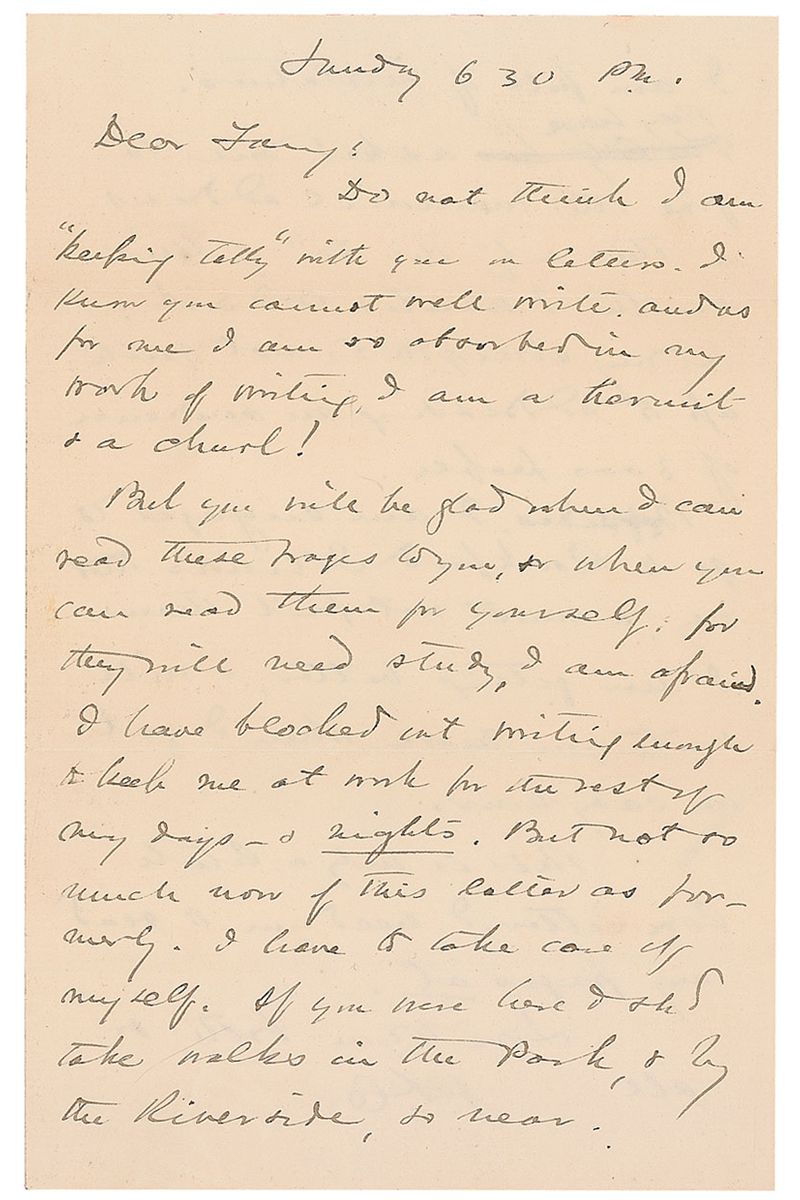 Sunday 6 30 P.M.
Dear Fanny:
Do not think I am
"keeping tally" with you in letters. I
know you cannot well write. and as
for me I am so absorbed in my
work of writing, I am a hermit
& a churl!
But you will be glad when I can
read these pages to you, or when you
can read them for yourself: for
they will need study, I am afraid.
I have blocked out writing enough
to keep me at work for the rest of
my days - & nights. But not so
much now of this latter as for-
merly. I have to take care of
myself. If you were here I shd
take walks in the Park, & by
the Riverside, so near.